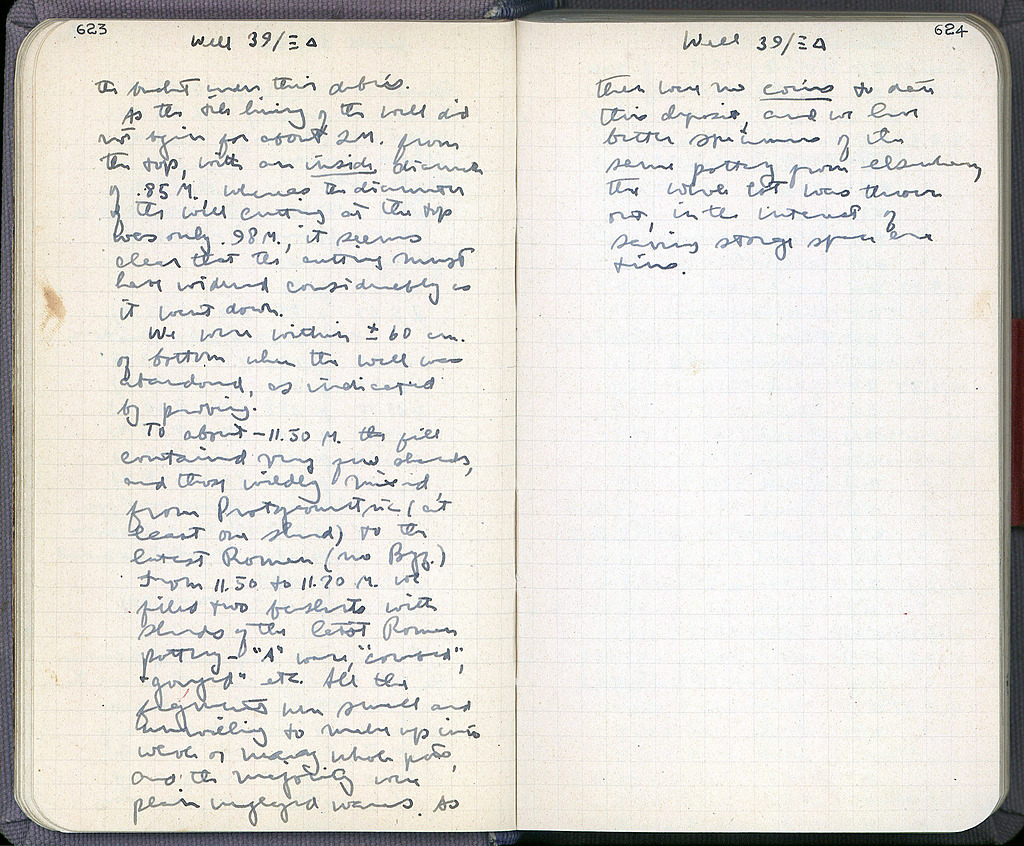 623
Well 39/ΞΔ
the bucket under this debris.
As the tile lining of the well did
not begin for about 2M. from
the top, with an inside diameter
of .85 M. whereas the diameter
of the well cutting at the top
was only .98 M., it seems
clear that the cutting must
have widened considerably as
it went down.
We were within ± 60 cm.
of bottom when the well was
abandoned, as indicated
by probing.
To about -11.50 M. the fill
contained very few sherds,
and those wildly mixed,
from Protgeometric (at
least one sherd) to the
latest Roman (no Byz.)
From 11.50 to 11.70 M. we
filled two baskets with
sherds of the latest Roman
pottery - "A" ware, "combed",
"gouged" etc. All the
fragments were small and
unwilling to make up into
whole or nearly whole pots,
and the majority were
plain unglazed wares. As
624
Well 39/ΞΔ
there were no coins to date
this deposit, and we have
better specimens of the
same pottery from elsewhere,
the whole lot was thrown
out, in the interest of
saving storage space and
tins.